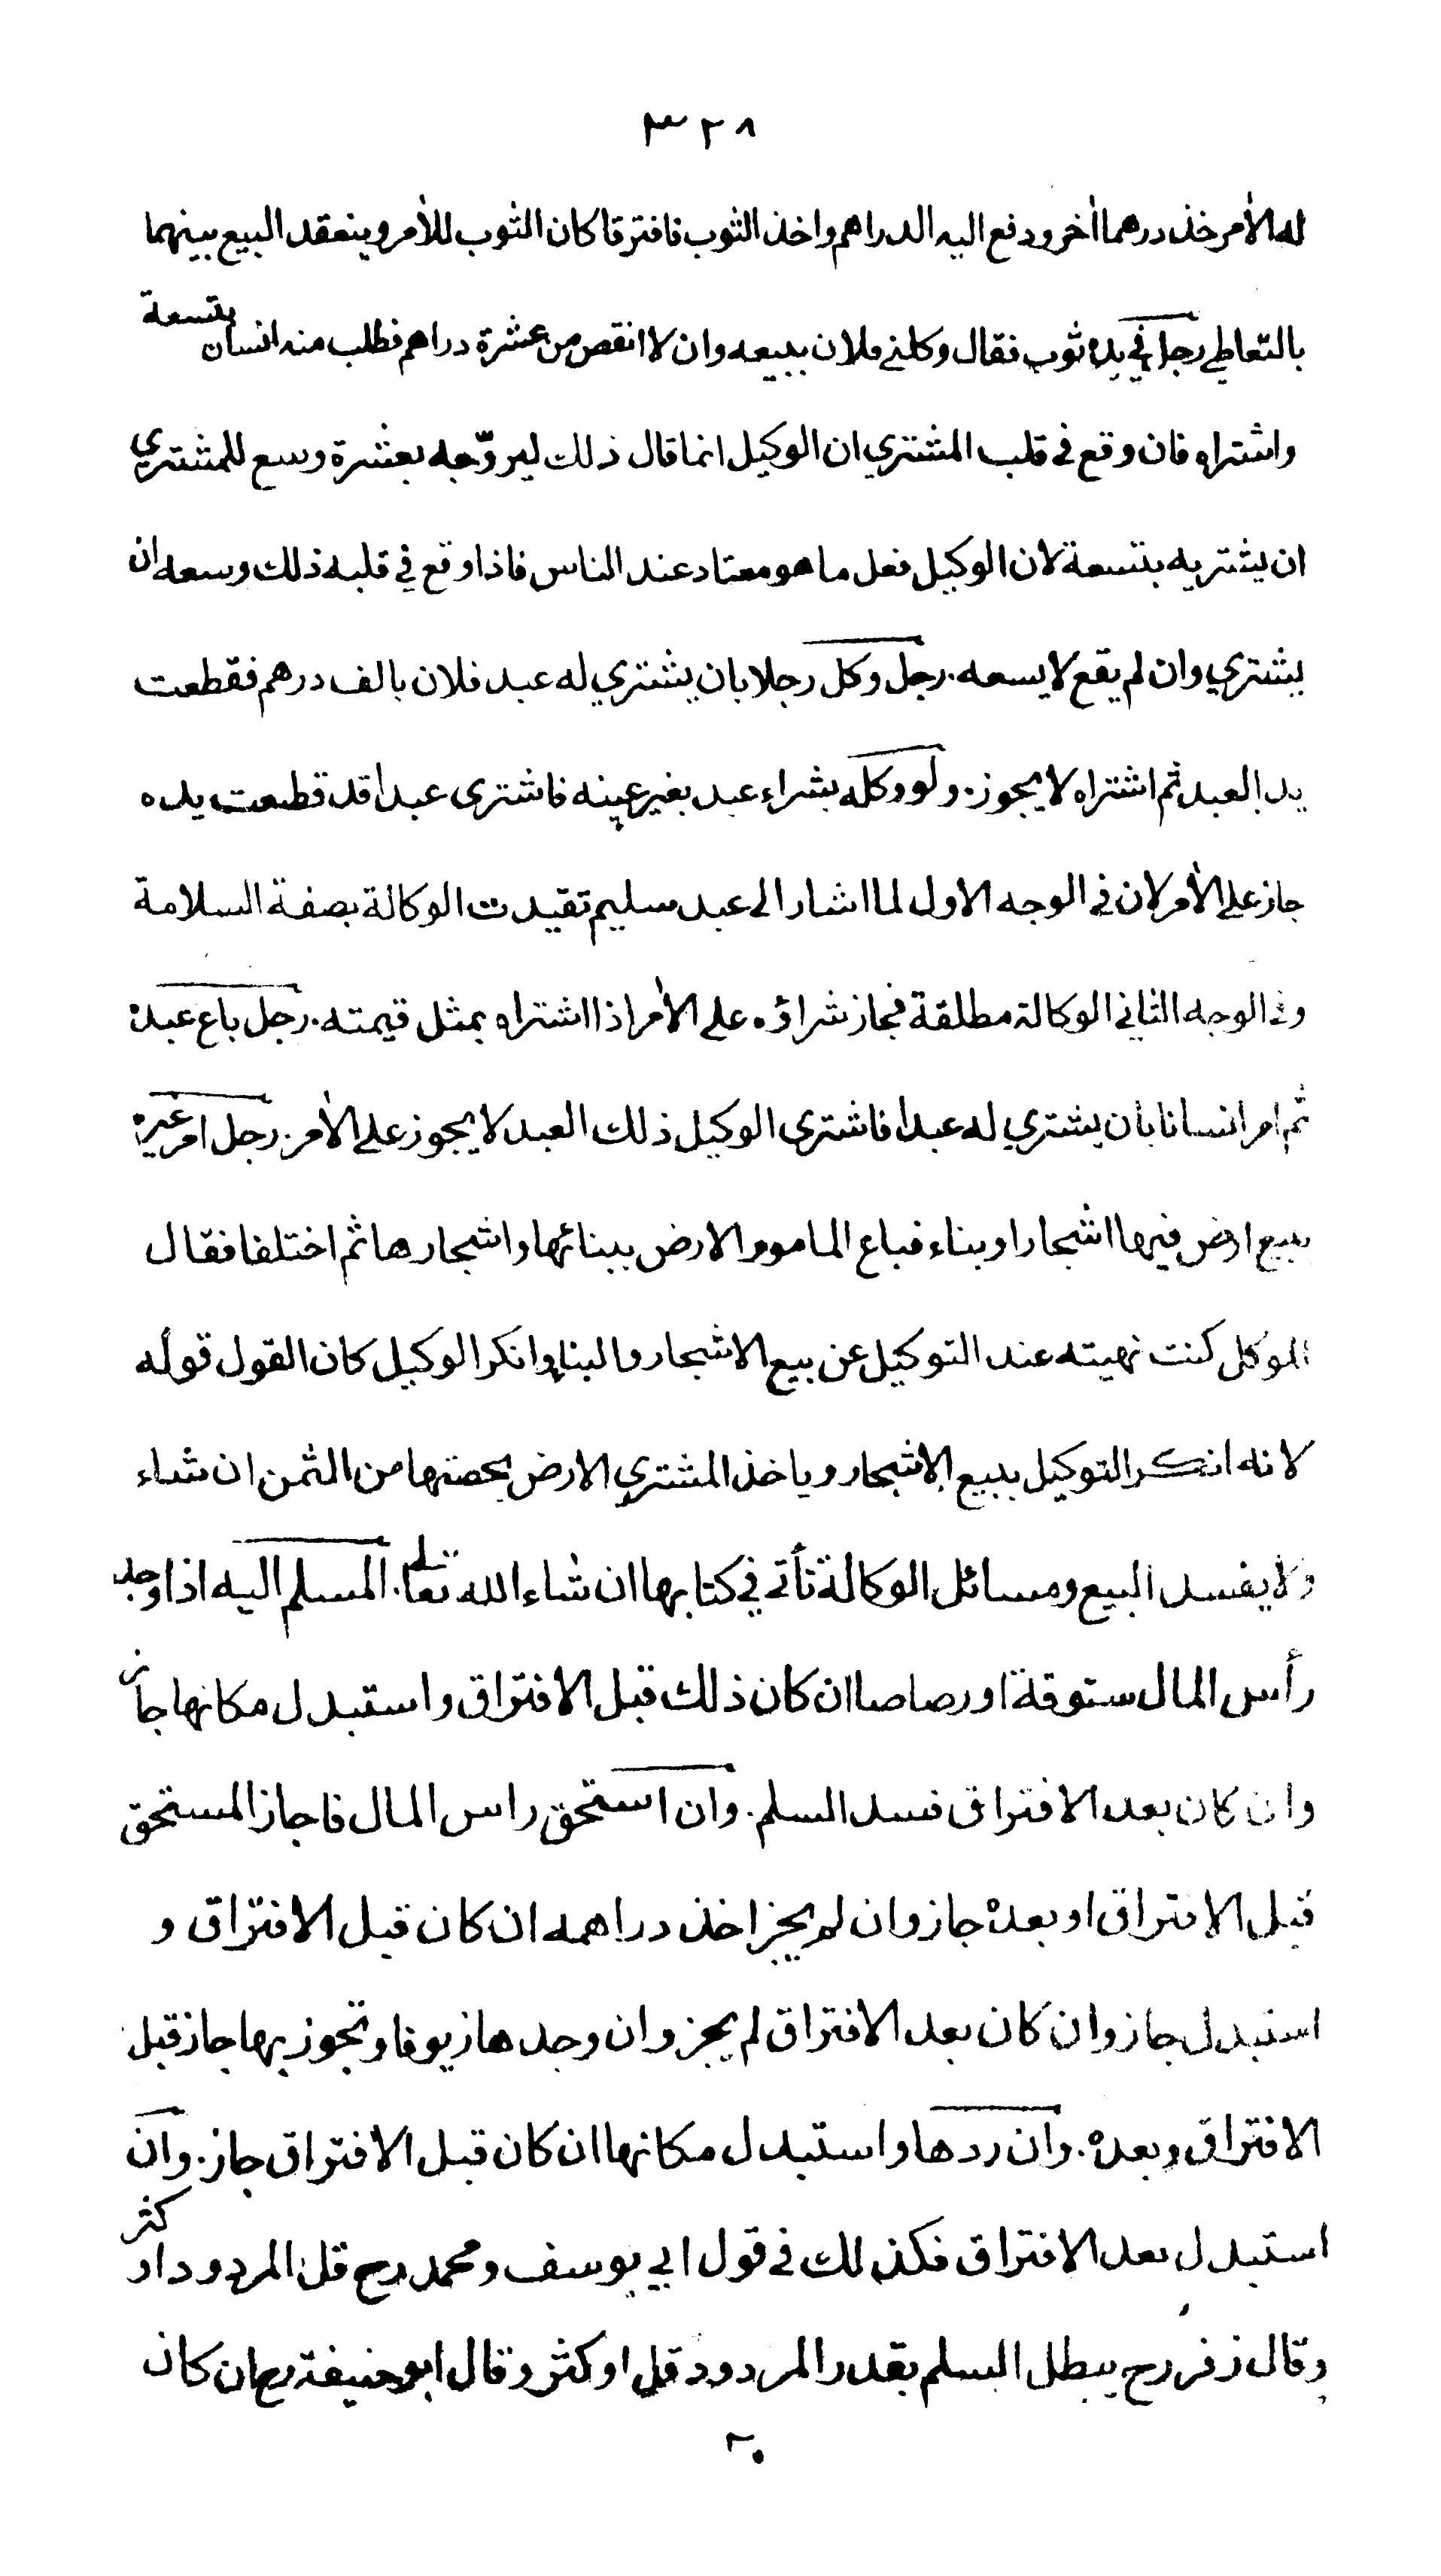 ٣٢٨
له الأمر خذ درهما أخر ودفع اليه الدراهم واخذ الثوب فافترقا كان الثوب للأمر وينعقد البيع بينهما
بالتعاطي رجل في يده ثوب فقال وكلني فلان ببيعه وان لا انقص من عشرة دراهم فطلب منه انسان بتسعة
واشتراه فان وقع في قلب المشتري ان الوكيل انما قال ذلك ليروّجه بعشرة وسع للمشتري
ان يشتريه بتسعة لان الوكيل فعل ما هو معتاد عند الناس فاذا وقع في قلبه ذلك وسعه ان
يشتري وان لم يقع لا يسعه. رجل وكل رجلا بان يشتري له عبد فلان بالف درهم فقطعت
يد العبد ثم اشتراه لا يجوز. ولو وكله بشراء عبد بغير عينه فاشترى عبدا قد قطعت يده
جاز على الأمر لان في الوجه الاول لما اشار الى عبد سليم تقيدت الوكالة بصفة السلامة
وفي الوجه الثاني الوكالة مطلقة فجاز شراؤه على الأمر اذا اشتراه بمثل قيمته. رجل باع عبده
ثم امر انسانا بان يشتري له عبدا فاشترى الوكيل ذلك العبد لا يجوز على الأمر. رجل امر غيره
ببيع ارض فيها اشجار او بناء فباع المامور الارض ببنائها واشجارها ثم اختلفا فقال
الموكل كنت نهيته عند التوكيل عن بيع الاشجار والبناء وانكر الوكيل كان القول قوله
لانه انكر التوكيل ببيع الاشجار وياخذ المشتري الارض بحصتها من الثمن ان شاء
ولا يفسد البيع ومسائل الوكالة تأتي في كتابها ان شاء الله تعالى. المسلم اليه اذا وجد
رأس المال ستوقة او رصاصا ان كان ذلك قبل الافتراق واستبدل مكانها جاز
وان كان بعد الافتراق فسد السلم. وان استحق راس المال فاجاز المستحق
قبل الافتراق او بعده جاز وان لم يجز اخذ دراهمه ان كان قبل الافتراق و
استبدل جاز وان كان بعد الافتراق لم يجز وان وجدها زيوفا وتجوز بها جاز قبل
الافتراق وبعده. وان ردها واستبدل مكانها ان كان قبل الافتراق جاز. وان
استبدل بعد الافتراق فكذلك في قول ابي يوسف ومحمد رح قل المردود او كثر
وقال زفر رح يبطل السلم بقدر المردود قل او كثر وقال ابو حنيفة رح ان كان